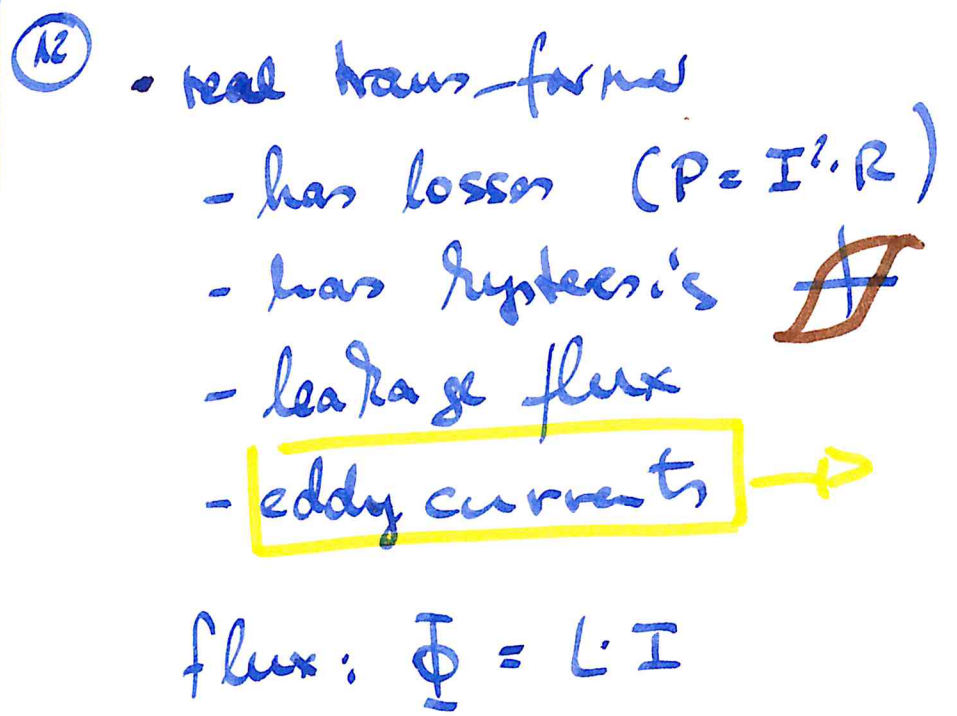 12
• real transformer
- has losses (P = I². R)
- has hysteresis
- leakage flux
- eddy currents →
flux: Φ = L · I